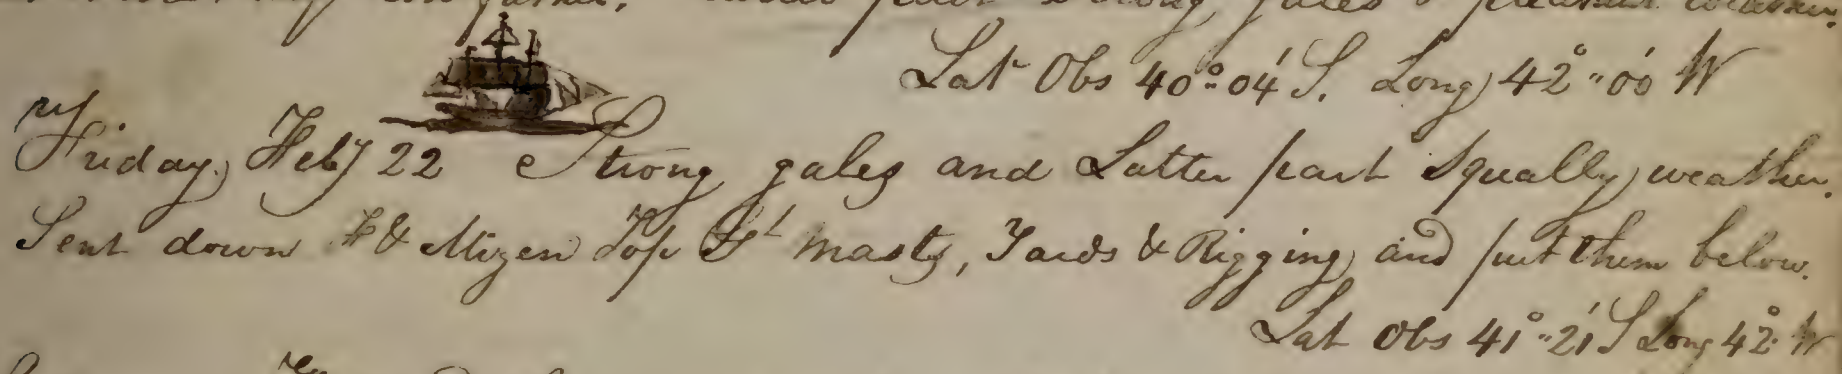 gales & pleasant weather.
Lat Obs 40°"04' S. Long 42°"00' W
Friday, Feby 22 Strong gales and Latter part Squally weather.
Sent down F & Mizen Top Gt masts, Yards & Rigging and put them below.
Lat Obs 41°"21' S Long 42° W